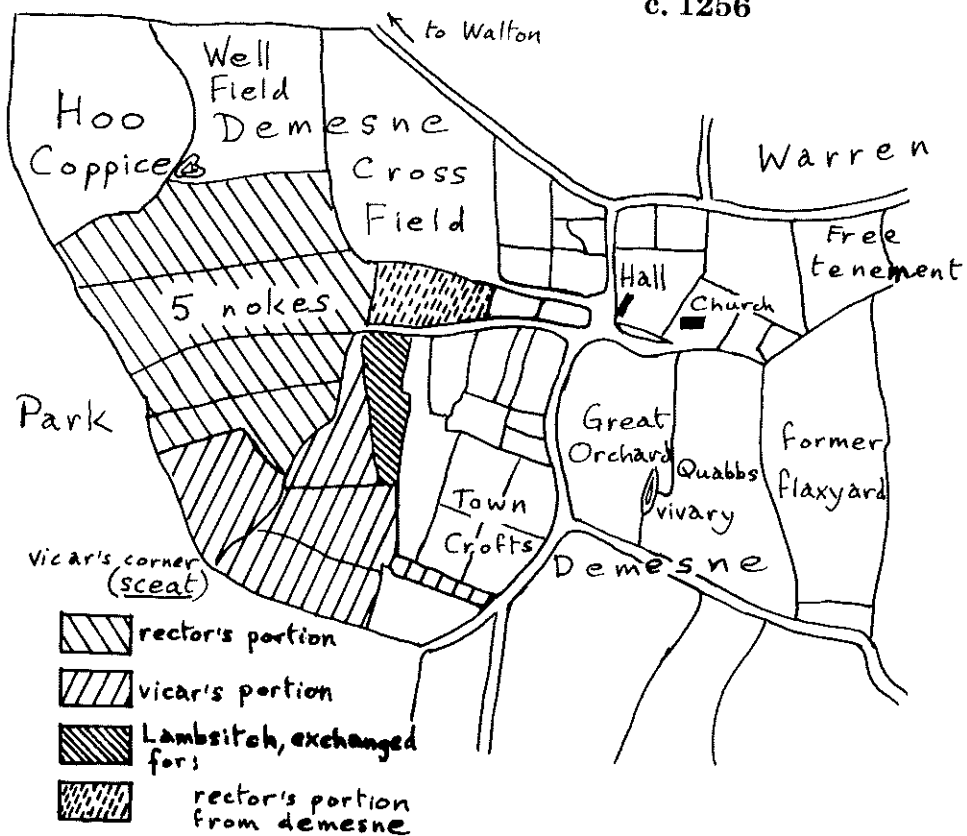 c. 1256
to Walton
Well
Field
Hoo
Coppice
Demesne
Cross
Field
Warren
Free
tenement
Hall
Church
5 nokes
Park
Great
Orchard
Quabbs
vivary
Former
flaxyard
Town
Crofts
Demesne
vicar's corner
(sceat)
rector's portion
vicar's portion
Lambsitch, exchanged
for:
rector's portion
from demesne